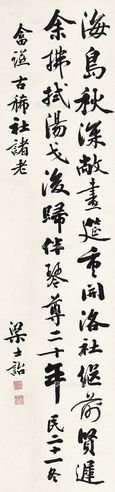 海島秋深敞畫筵重開洛社繼前賢遲
余拂拭湯戈後歸伴琴尊二十年民二十一冬
畣謚古稀社諸老
梁士詒